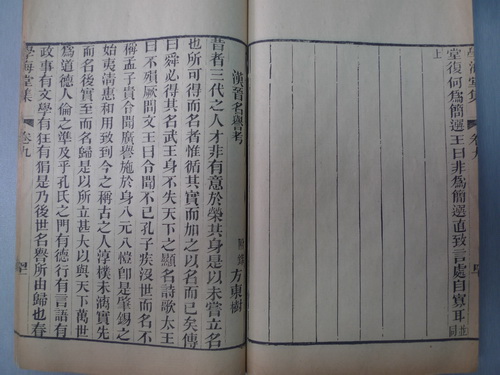 學海堂集
卷九
堂復何爲簡選王曰非爲簡選直致言處自寡耳並同
上
漢晉名譽考
方東樹
昔者三代之人才非有意於榮其身是以未嘗立名
也所可得而名者惟循其實而加之以名而已矣傳
曰舜必得其名武王身不失天下之顯名詩歌太王
曰不殞厥問文王曰令聞不已孔子疾沒世而名不
稱孟子貴令聞廣譽施於身八元八愷卽是肇錫之
始夷淸惠和用致到今之稱古之人淳樸未漓實先
而名後實至而名歸是以所立甚大以與天下萬世
爲道德人倫之準及乎孔氏之門有德行有言語有
政事有文學有狂有狷是乃後世名譽所由歸也春
學海堂集
卷九